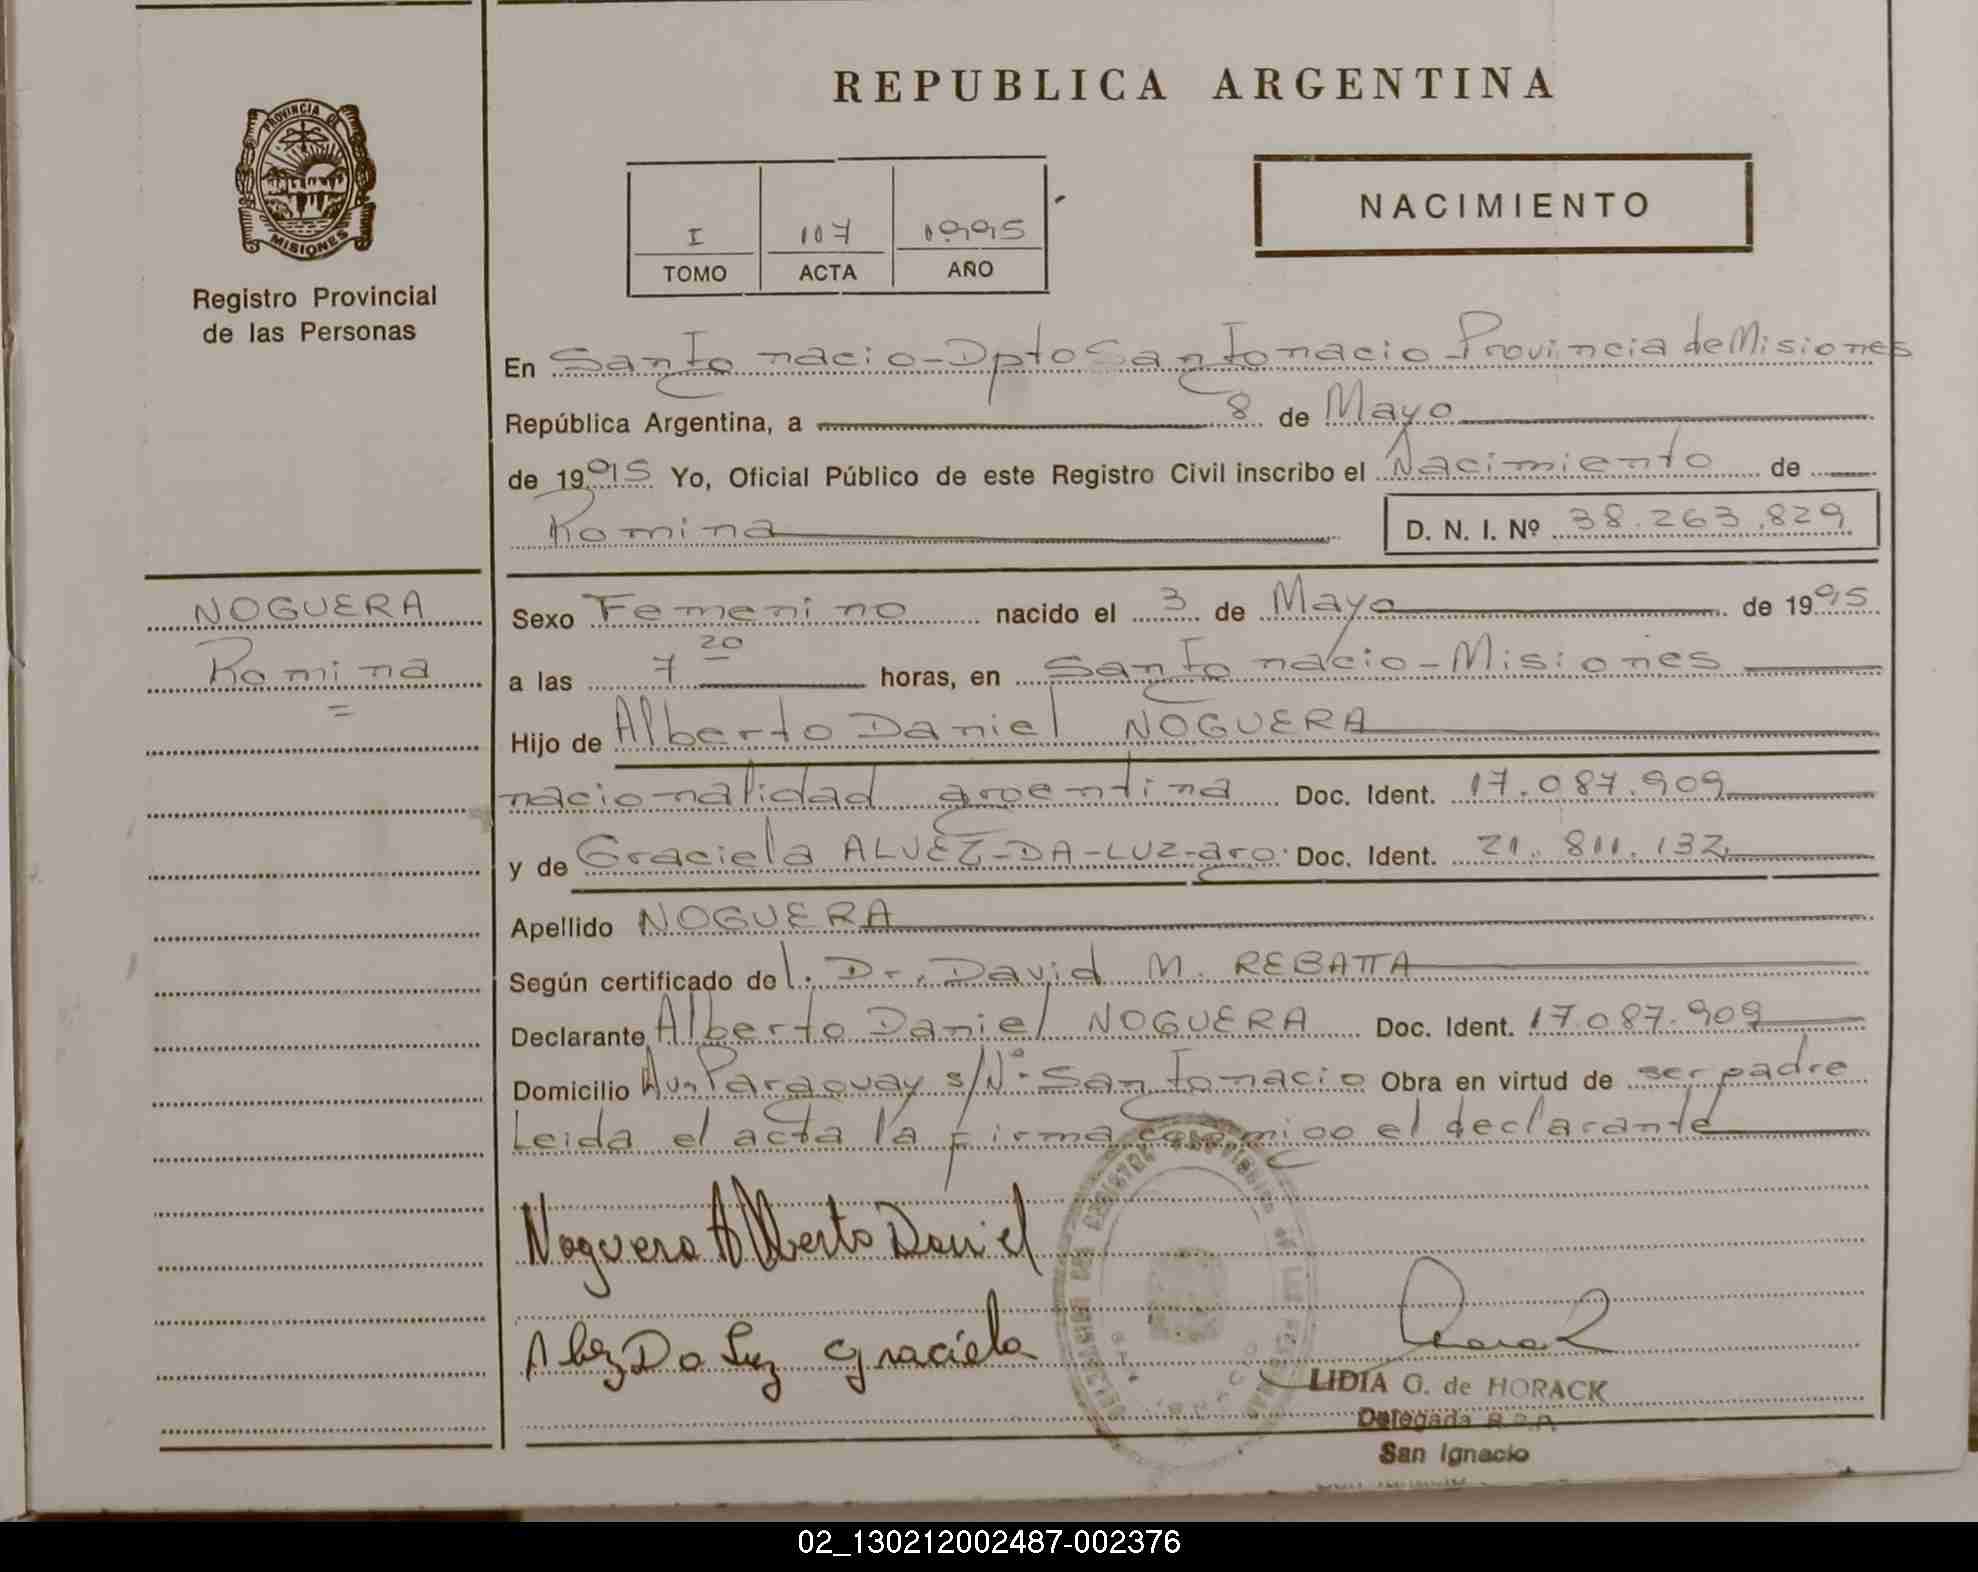 REPUBLICA ARGENTINA
PROVINCIA DE
MISIONES
Registro Provincial
de las Personas
I 107 1995
TOMO ACTA AÑO
NACIMIENTO
En San Ignacio - Dpto San Ignacio - Provincia de Misiones
República Argentina, a 8 de Mayo
de 1995 Yo, Oficial Público de este Registro Civil inscribo el Nacimiento de
Romina D. N. I. Nº 38.263.829
NOGUERA
Romina
Sexo Femenino nacido el 3 de Mayo de 1995
a las 7 20 horas, en San Ignacio - Misiones
Hijo de Alberto Daniel NOGUERA
nacionalidad argentina Doc. Ident. 17.087.909
y de Graciela ALVEZ-DA-LUZ-arg. Doc. Ident. 21.811.132
Apellido NOGUERA
Según certificado de l. Dr. David M. REBATTA
Declarante Alberto Daniel NOGUERA Doc. Ident. 17.087.909
Domicilio Av. Paraguay s/Nº - San Ignacio Obra en virtud de ser padre
Leida el acta la firma conmigo el declarante
Noguera Alberto Daniel
Alvez Da Luz Graciela
LIDIA G. de HORACK
Delegada R.P.P.
San Ignacio
02_130212002487-002376